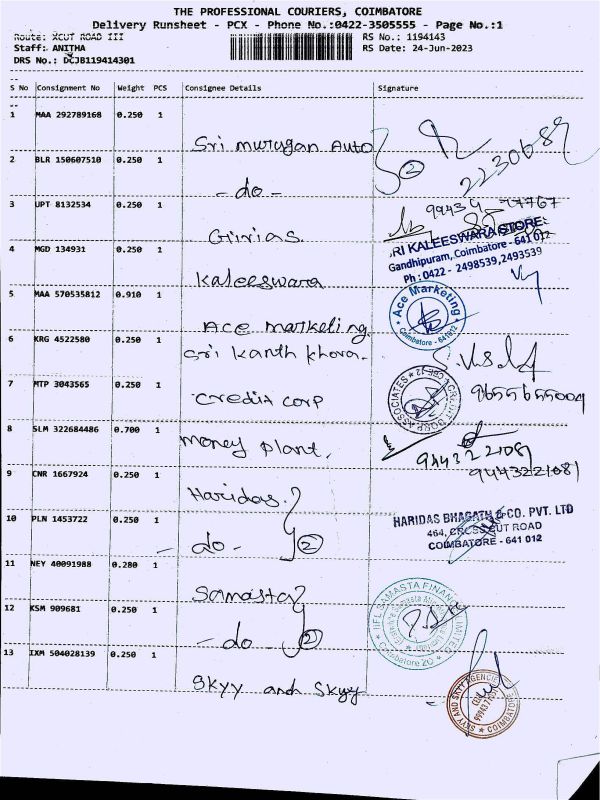 THE PROFESSIONAL COURIERS, COIMBATORE
Delivery Runsheet - PCX - Phone No.:0422-3505555 - Page No.:1
Route: XCUT ROAD III
RS No.: 1194143
Staff: ANITHA
RS Date: 24-Jun-2023
DRS No.: DCJB119414301
S No Consignment No Weight PCS Consignee Details Signature
1 MAA 292789168 0.250 1
Sri murugan Auto
2230689
2 BLR 150607510 0.250 1
- do - 2
3 UPT 8132534 0.250 1
Girias.
SRI KALEESWARA STORE
Gandhipuram, Coimbatore - 641 012
Ph : 0422 - 2498539, 2493539
4 MGD 134931 0.250 1
Kaleeswara
5 MAA 570535812 0.910 1
Ace Marketing
Ace Marketing
Coimbatore - 641012
6 KRG 4522580 0.250 1
Sri Kanth Khora.
7 MTP 3043565 0.250 1
Credit Corp
8 SLM 322684486 0.700 1
money plant.
9443221081
9443221081
9 CNR 1667924 0.250 1
Haridas.
10 PLN 1453722 0.250 1
- do - 2
HARIDAS BHAGATH & CO. PVT. LTD
464, CROSS CUT ROAD
COIMBATORE - 641 012
11 NEY 40091988 0.280 1
Samasta
IIFL SAMASTA FINANCE LIMITED
Coimbatore ZO
12 KSM 909681 0.250 1
- do - 2
13 IXM 504028139 0.250 1
Skyy and Skyy
SKYY AND SKYY AGENCIES
COIMBATORE